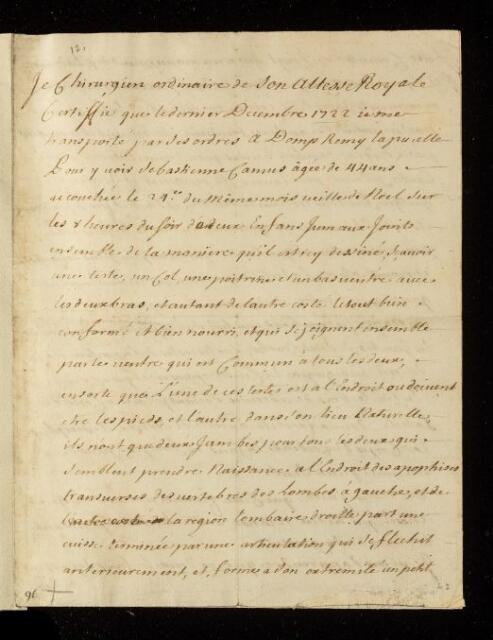 12.
Je Chirurgien ordinaire de Son Altesse Royale
Certiffie que le dernier Decembre 1722 ie me
transporté par ses ordres A Domp Remy la pucelle
Pour y voir Sebastienne Camus âgée de 44 ans
accouchée le 24.e du Même mois veille de Noel Sur
les 8 heures du soir de deux Enfans Jumaux Joints
ensemble de la maniere qu'il est icy dessiné, Scavoir
une teste, un Col, une poitrine et un bas ventre avec
les deux bras, et autant de lautre costé le tout bien
conformé et bien nourri, et qui se joignent ensemble
par le ventre qui est Commun à tous les deux,
ensorte que L'une de ces testes est a l'Endroit ou doivent
etre les pieds, et l'autre dans son lieu Naturelle,
ils n'ont que deux Jambes pour tous les deux qui
semblent prendre Naissance a l'Endroit des apophises
transverses des vertebres des Lombes à gauche, et de
la region Lombaire droitte part une
cuisse terminée par une articulation qui se flechit
anterieurement, et, forme a son extremité un petit
96